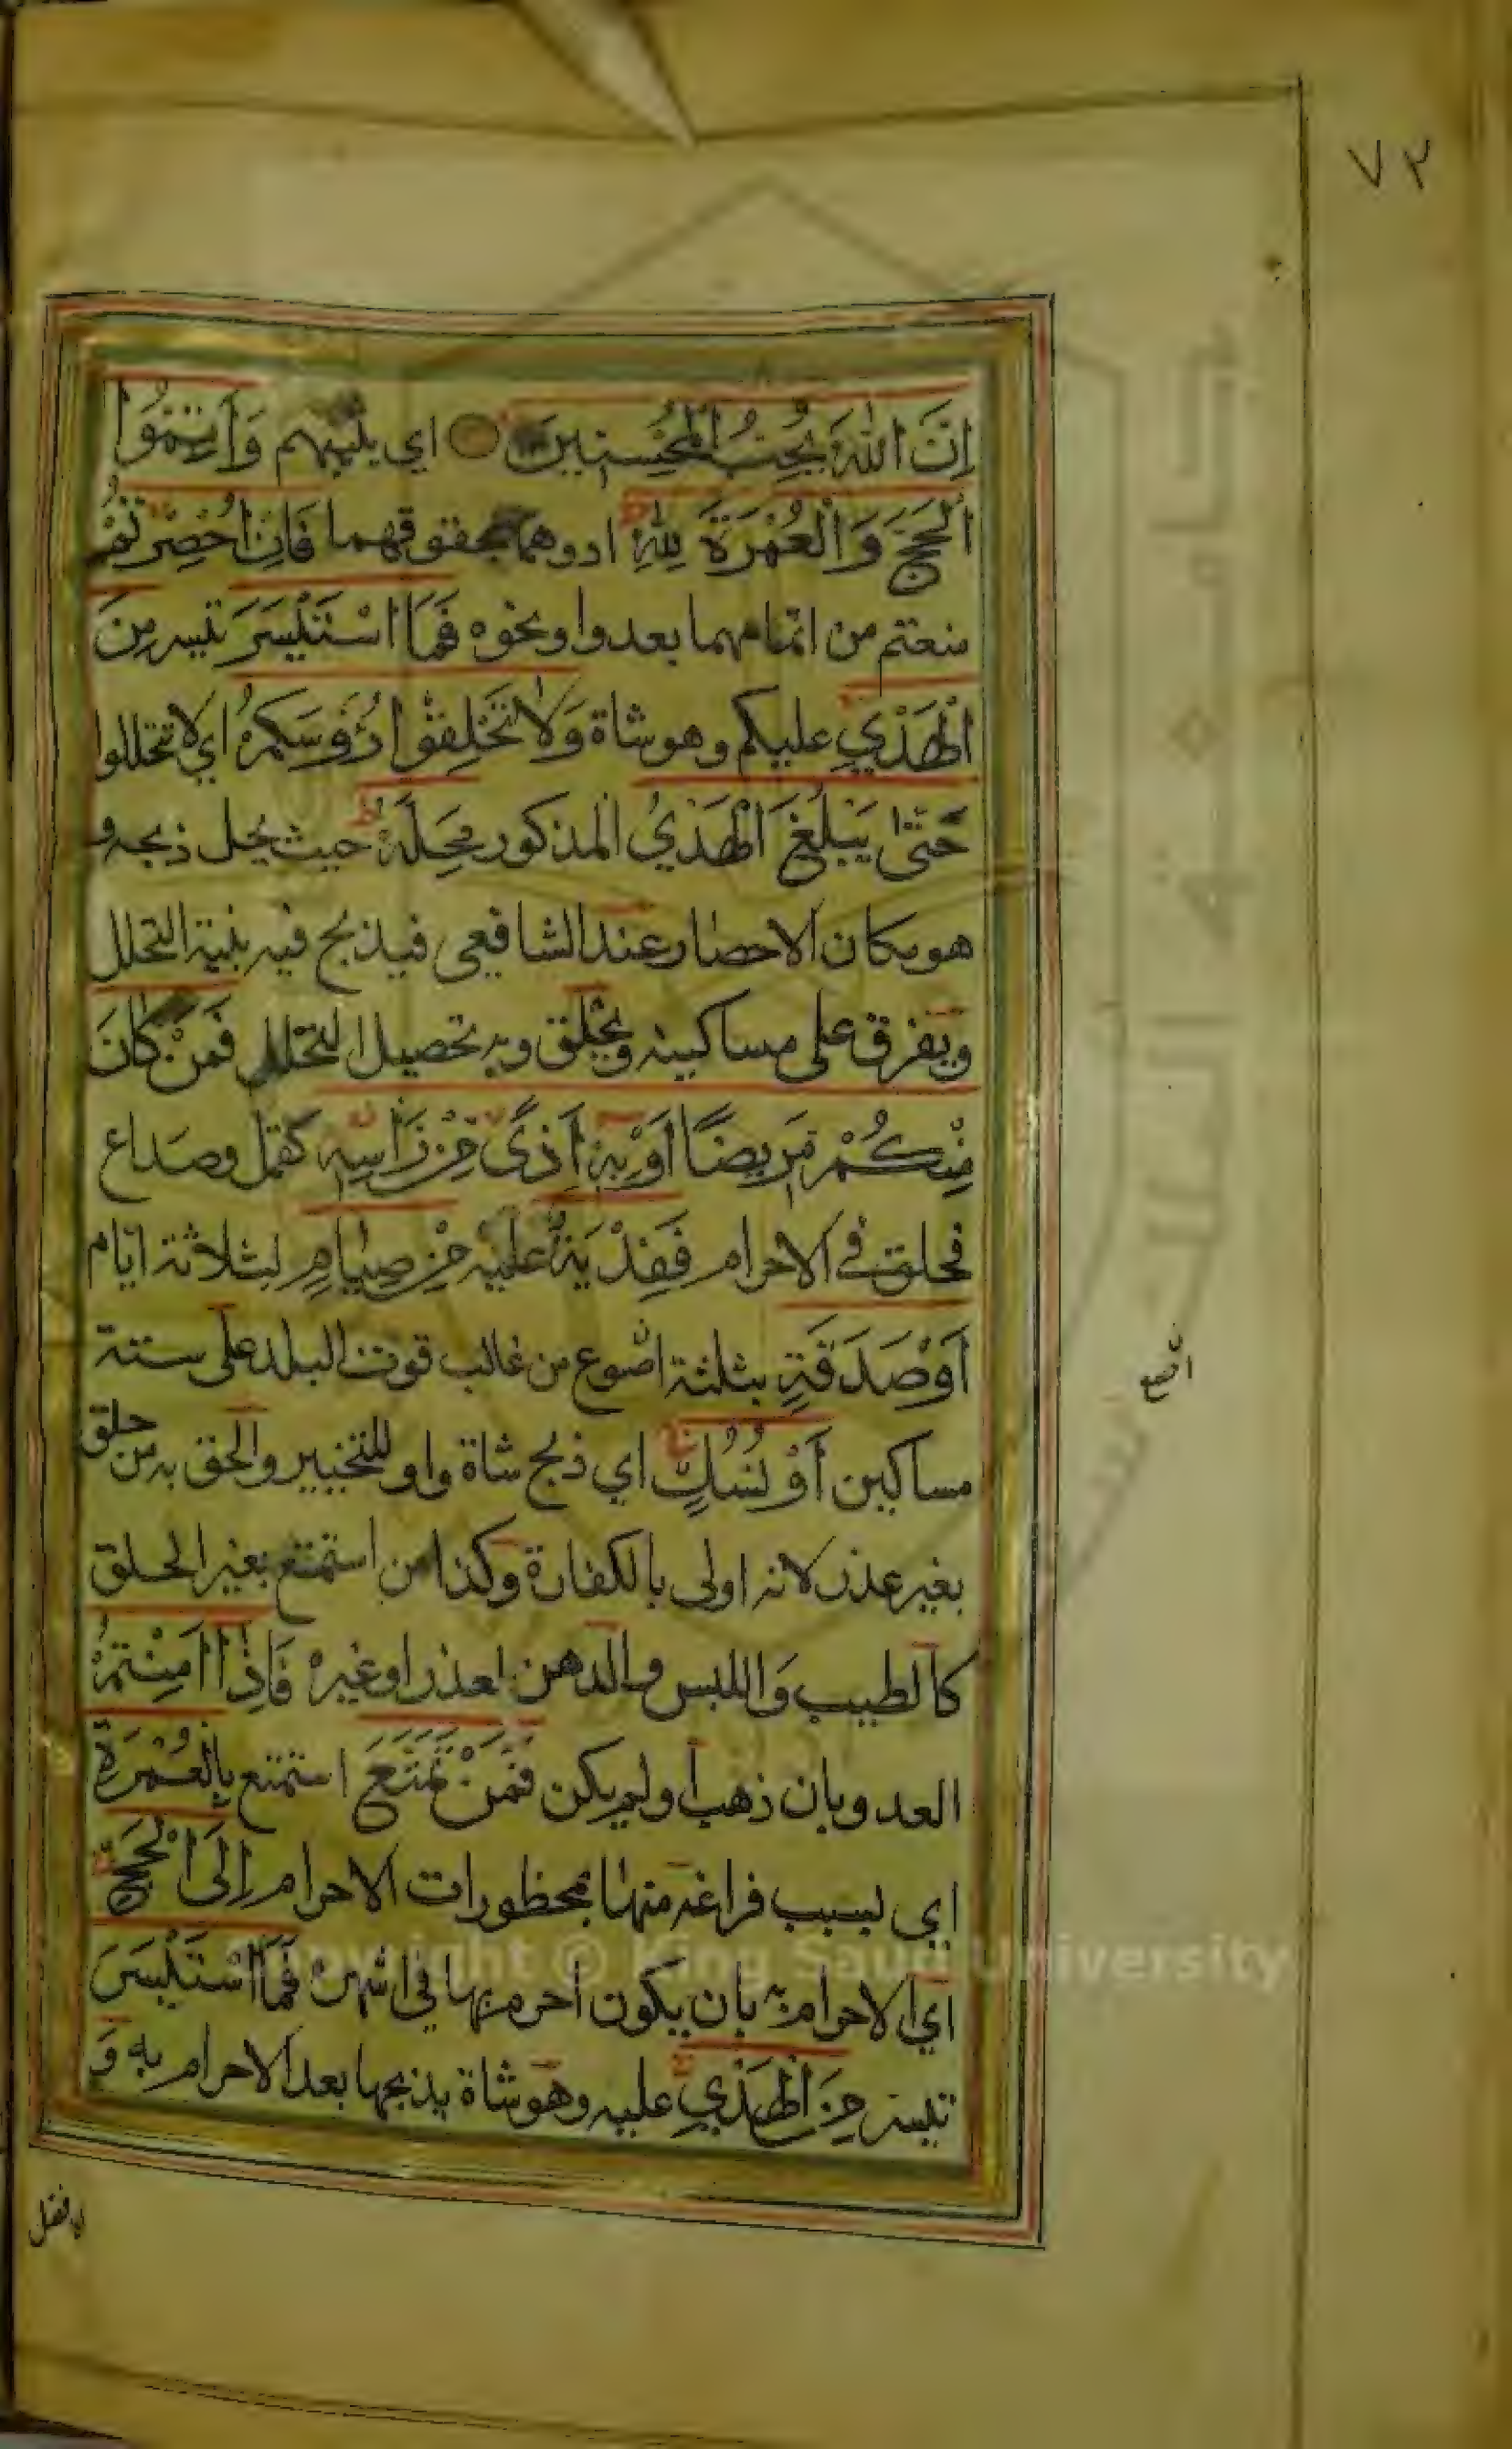 ٧٢
اِنَّ اللّٰهَ يُحِبُّ الْمُحْسِنِينَ اي يثيبهم وَاَتِمُّوا
الْحَجَّ وَالْعُمْرَةَ لِلّٰهِ ادوهما بحقوقهما فَاِنْ اُحْصِرْتُمْ
منعتم من اتمامهما بعدوا ونحوه فَمَا اسْتَيْسَرَ تيسر مِنَ
الْهَدْيِ عليكم وهو شاة وَلَا تَحْلِقُوْا رُؤُوسَكُمْ اي لا تتحللوا
حَتّٰى يَبْلُغَ الْهَدْيُ المذكور مَحِلَّهُ حيث يحل ذبحه و
هو مكان الاحصار عند الشافعى فيذبح فيه بنية التحلل
ويفرق على مساكينه ويحلق وبه تحصيل التحلل فَمَنْ كَانَ
مِنْكُمْ مَرِيضًا اَوْ بِهٖ اَذًى مِنْ رَاْسِهٖ كقمل وصداع
فحلق في الاحرام فَفِدْيَةٌ عليه مِنْ صِيَامٍ لثلاثة ايام
اَوْ صَدَقَةٍ بثلثة اصوع من غالب قوت البلد على ستة
مساكين اَوْ نُسُكٍ اي ذبح شاة واو للتخيير والحق به من حلق
بغير عذر لانه اولى بالكفارة وكذا من استمتع بغير الحلق
كالطيب واللبس والدهن لعذر او غيره فَاِذَا اَمِنْتُمْ
العدو بان ذهب اولم يكن فَمَنْ تَمَتَّعَ استمتع بِالْعُمْرَةِ
اي بسبب فراغه منها بمحظورات الاحرام اِلَى الْحَجِّ
اي الاحرام به بان يكون احرم بها في اشهره فَمَا اسْتَيْسَرَ
تيسر مِنَ الْهَدْيِ عليه وهو شاة يذبحها بعد الاحرام به وَ
Copyright © King Saud University